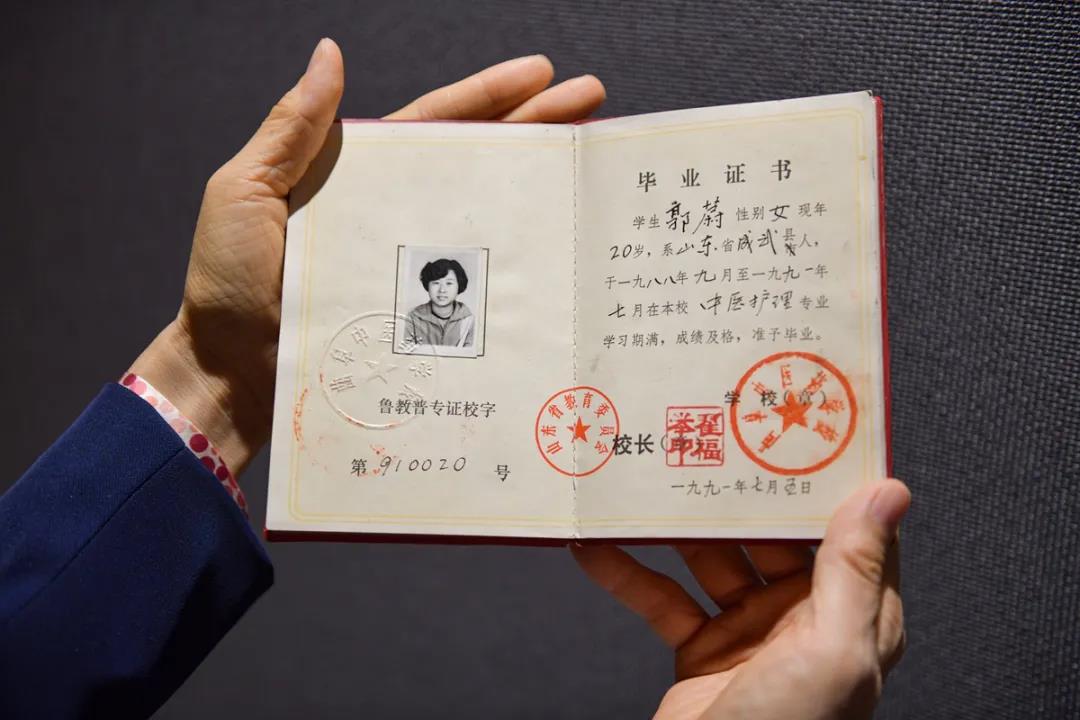 鲁教普专证校字
第 910020 号
山东省教育委员会
毕业证书
学生 郭蔚 性别 女 现年
20岁，系山东省成武县人，
于一九八八年九月至一九九一年
七月在本校 中医护理 专业
学习期满，成绩及格，准予毕业。
学校（章）
校长
翟福
举印
一九九一年七月五日